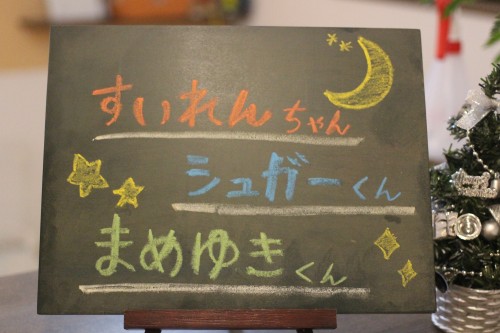 すいれんちゃん
シュガーくん
まめゆきくん